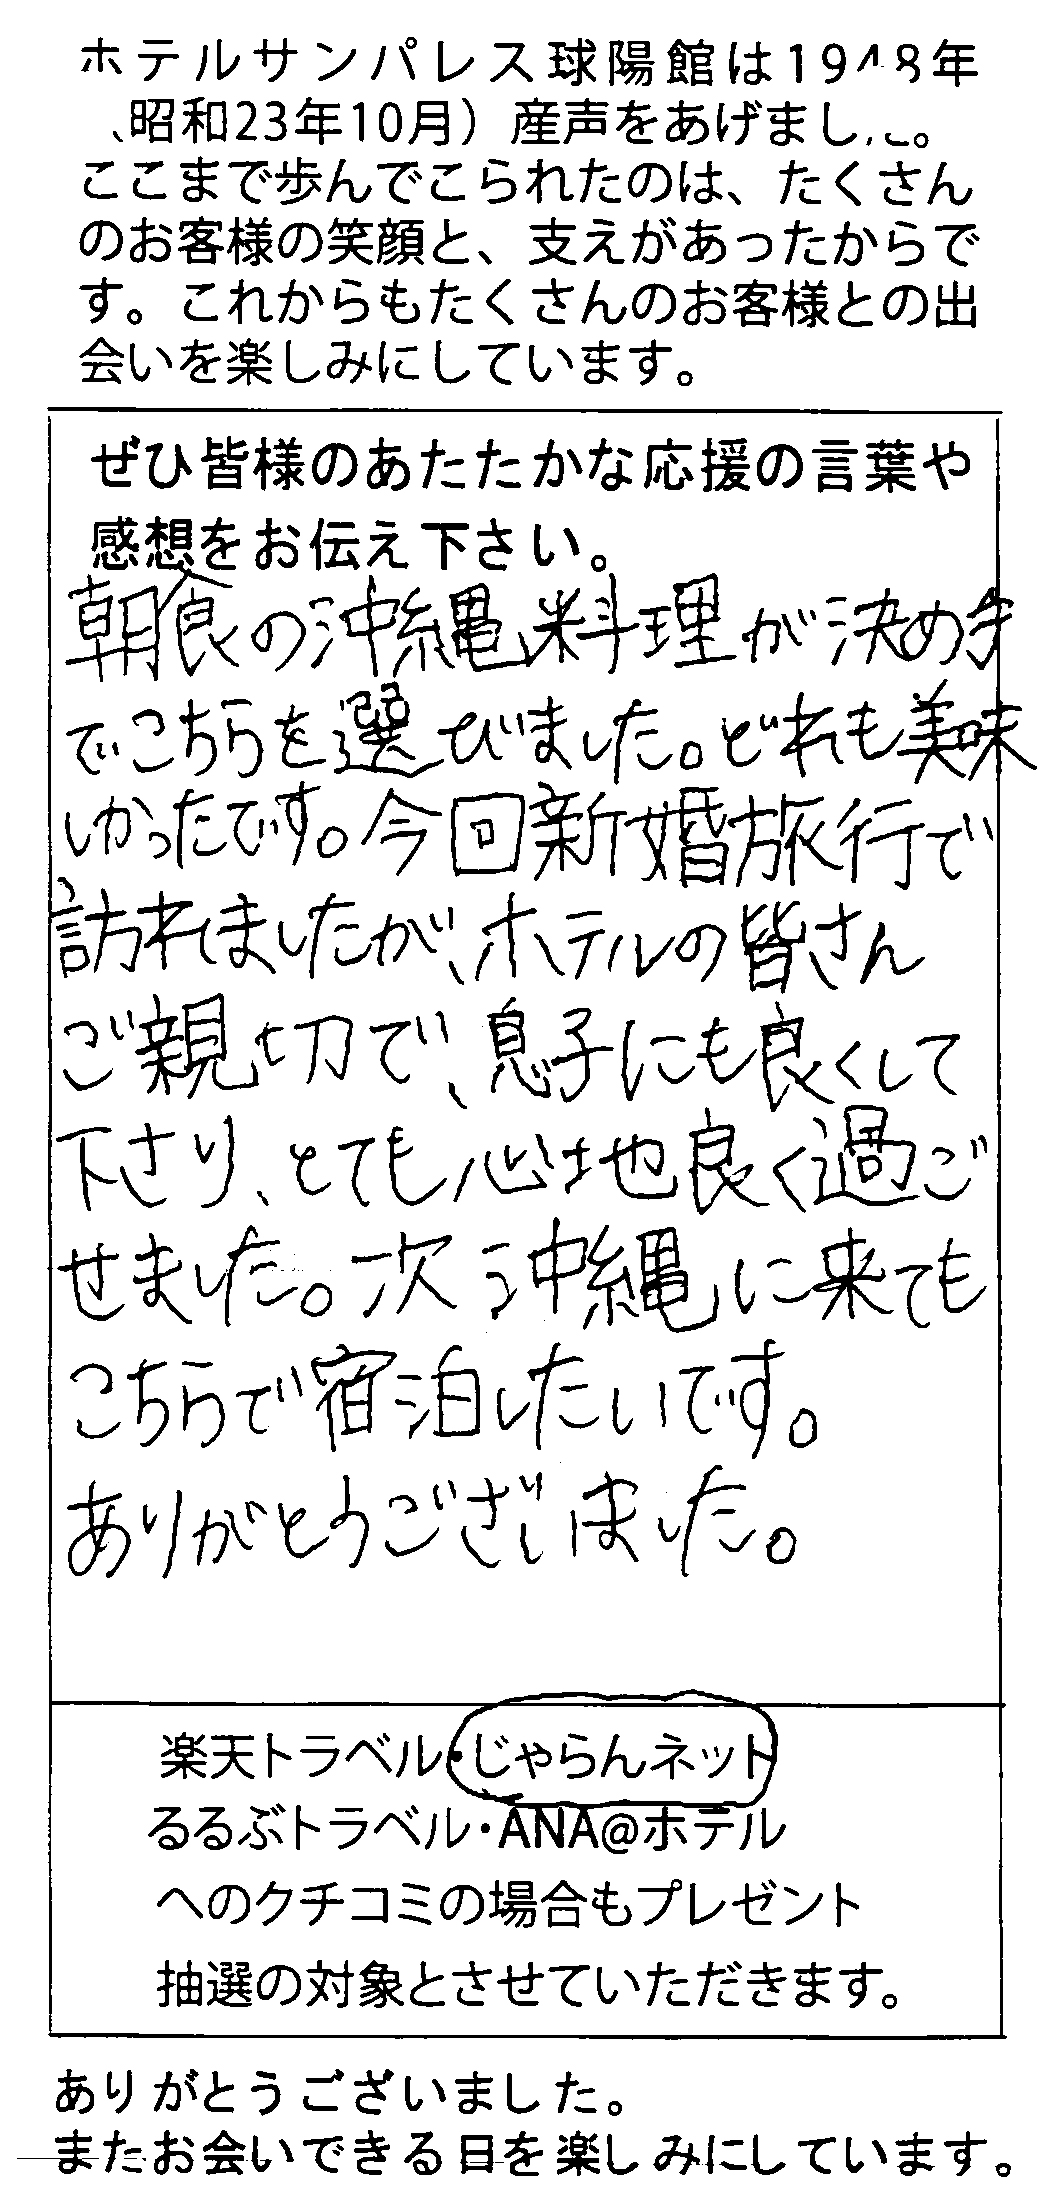 ホテルサンパレス球陽館は1948年
（昭和23年10月）産声をあげました。
ここまで歩んでこられたのは、たくさん
のお客様の笑顔と、支えがあったからで
す。これからもたくさんのお客様との出
会いを楽しみにしています。
ぜひ皆様のあたたかな応援の言葉や
感想をお伝え下さい。
朝食の沖縄料理が決め手
でこちらを選びました。どれも美味
しかったです。今回新婚旅行で
訪れましたが、ホテルの皆さん
ご親切で、息子にも良くして
下さり、とても心地良く過ご
せました。次沖縄に来ても
こちらで宿泊したいです。
ありがとうございました。
楽天トラベル・じゃらんネット
るるぶトラベル・ANA@ホテル
へのクチコミの場合もプレゼント
抽選の対象とさせていただきます。
ありがとうございました。
またお会いできる日を楽しみにしています。